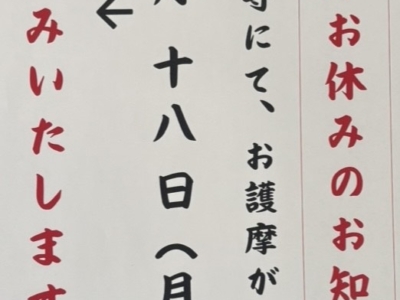 お休みのお知
にて、お護摩が
十八日（月
みいたします